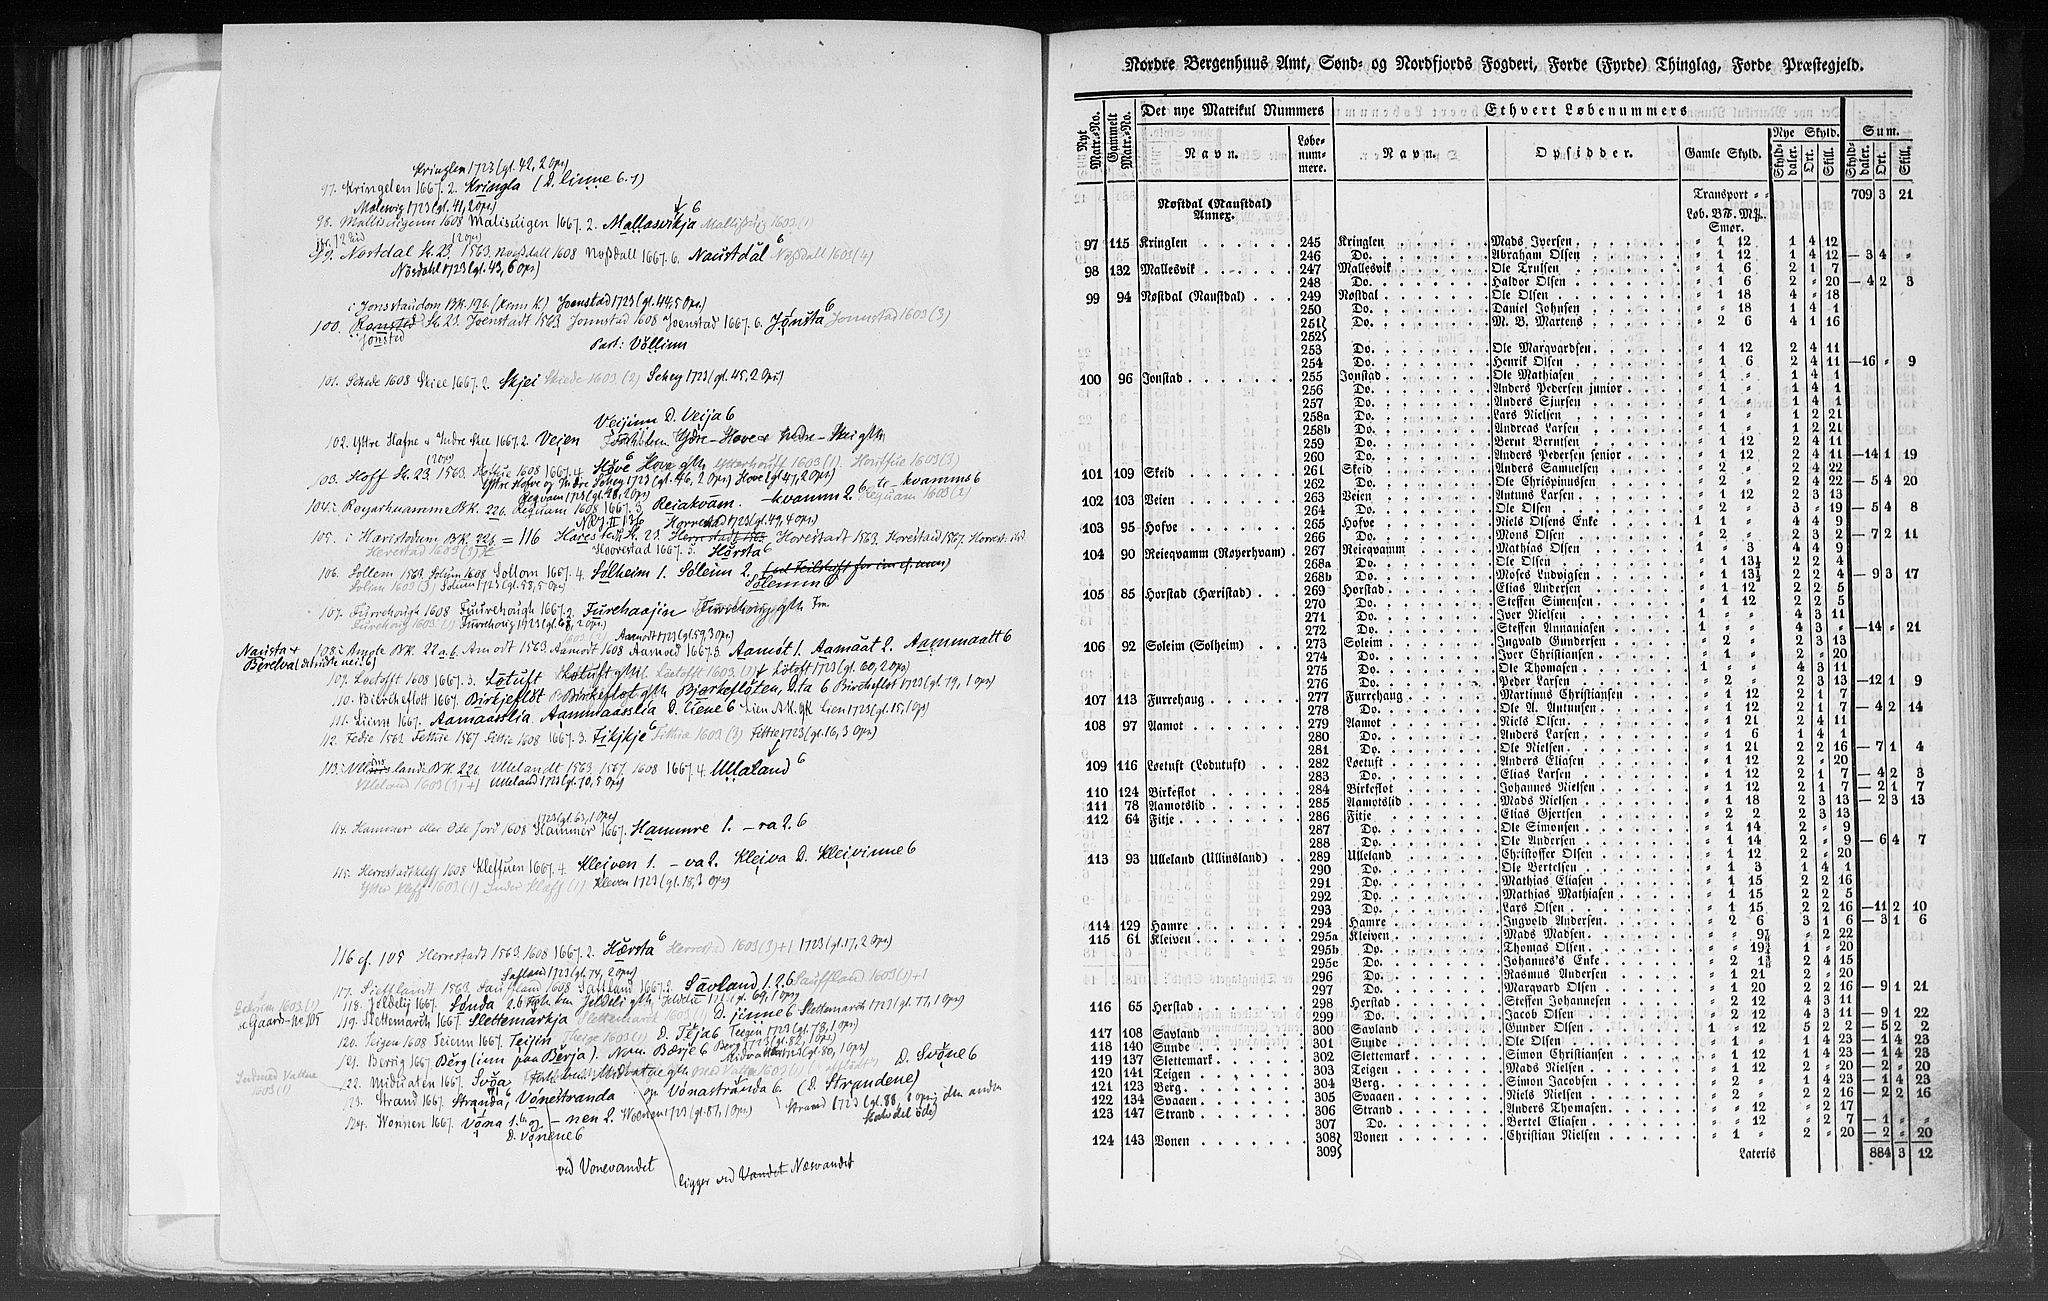 Kringlen 1723 (gl. 42, 2 Ops)
97. Kringelen 1667. 2. Kringla (D. linne 6.1)
Malewig 1723 (gl. 41, 2 Ops)
98. Mallisuigenn 1608 Malisuigen 1667. 2. Mallasvikja 6 Mallissuig 1603 (1)
99. Nostdal St. 23. 1563. Noßdall 1608 Noßdall 1667. 6. Naustdal 6 Noßdall 1603 (4)
Nosdahl 1723 (gl. 43, 6 Ops)
i Jonsstaudom BK. 19b. (Kinn K.) Joenstad 1723 (gl. 44, 5 Ops)
100. St. 23. Joenstadt 1563 Jonnstad 1608 Joenstad 1667. 6. Jönsta 6 Jonnstad 1603 (3)
Jonsted
Part: Völlinn
101. Schede 1608 Skiee 1667. 2 Skjei Skiede 1603 (2) Schey 1723 (gl. 45, 2 Ops)
Veijinn D. Veija 6
102. Yttre Hafne & Indre Skee 1667. 2. Veien Ydre-Hove & Indre-Skei gtl
103. Hoff St. 23. 1563 Hoffue 1608 1667. 4. Hove 6 Hova gtl Ytterhouff 1603 (1). Houffue 1603 (3)
Yttre Hofve og Indre Schey 1723 (gl. 46, 2 Ops) Hove (gl. 47, 2 Ops)
Regvam 1723 (gl. 48, 2 Ops)
104. i Royarhuamme BK. 22b. Requam 1608 1667. 3 Reiakvam. -kvamm 2. 6 te -kvamms 6 Requam 1603 (2)
N.G.J. II 136 Horrestad 1723 (gl. 49, 4 Ops)
105. i Hæristodum BK. 22b. = 116 Harested St. 23. Horestadt 1563. Horestad 1567.
Herestad 1603 (3) Hoorestad 1667. 5. Hörsta 6
106. Sollem 1563. Solum 1608 Sollom 1667. 4. Solheim 1. Soleim 2.
Solium 1603 (3) Solum 1723 (gl. 58, 5 Ops) Solemm 6
107. Furrehough 1608 Fuurehough 1667. 2. Furehaajin Furrehoug gtl
Furehoug 1603 (1) Furrehoug 1723 (gl. 68, 2 Ops)
Aamodt 1723 (gl. 59, 3 Ops)
Nausta & 108. i Amote BK. 22 a. b. Amodt 1563. Aamodt 1608 Aamoed 1667. 3. Aamot 1. Aamaat 2. Aammaatt 6
Berelva (det siste nei. 6)
109. Løetofft 1608 1667. 3. Løtuft Løetofft 1603 (1) Løtoft 1723 (gl. 60, 2 Ops)
110. Bierckeflott 1667. Birkjefløt Birkeflot gtl. Bjørkefløten, D. ta 6 Bircheflot 1723 (gl. 79, 1 Ops)
111. Lienn 1667. Aamaasslia. Aammaasslia D. liene 6 Lien A.K. gk Lien 1723 (gl. 15, 1 Ops)
112. Fedie 1563 Fethie 1567 Fittie 1608 1667. 3. Fikjkje 6 Fithia 1603 (3) Fittie 1723 (gl. 16, 3 Ops)
113. i Ullinslande BK. 22b. Ullelandt 1563. 1567. 1608 1667. 4. Ullaland 6
Ulleland 1603 (3)+1 Ulleland 1723 (gl. 70, 5 Ops)
1723 (gl. 63, 1 Ops)
114. Hammer eller Øde Jord 1608 Hammer 1667. Hammre 1. -ra 2. 6
115. Herrestadkleff 1608 Kleffuen 1667. 4. Kleiven 1. -va 2. Kleiva D. Kleivinne 6
Ytter Kleff 1603 (1) Inder Kleff (1) Kleven 1723 (gl. 18, 3 Ops)
116 cf. 105 Herrestadt 1563. 1608 1667. 2. Hærsta 6 Herrestad 1603 (3)+1 1723 (gl. 17, 2 Ops)
Safland 1723 (gl. 74, 2 Ops)
117. Siefflandt 1563. Sauffland 1608 Saffland 1667. 2. Savland 1. 2. 6 Sauffland 1603 (1)+1
118. Jøldelig 1667. Sonda 2. 6 gtl. 1723 (gl. 69, 1 Ops)
se Gaard-No 105 119. Slettemarch 1667. Slettemarkja Slettemarck 1603 (1) D. jinne 6 Slettemarch 1723 (gl. 77, 1 Ops)
120. Teigen 1608 Teienn 1667. Teijin Theige 1603 (1) D. Teja 6 Teegen 1723 (gl. 78, 1 Ops)
121. Berrig 1667 Berg (inn paa Berja). Nom. Bærje 6 Berg 1723 (gl. 82, 1 Ops)
1723 (gl. 80, 1 Ops)
122. Miduaten 1667. Svøa D. Svøne 6
123. Strand 1667. Stranda 6, Vonestranda og Vonastranda 6. (D. Strandene)
Strand 1723 (gl. 88, 1 Ops; den anden halvdel øde)
124. Wonnen 1667. Vona 1. 6 og -nen 2. Woenen 1723 (gl. 87, 1 Ops)
D. Vonene 6
ved Vonevandet
ligger ved Vandet Næsvandet
Nordre Bergenhuus Amt, Sønd- og Nordfjords Fogderi, Førde (Fyrde) Thinglag, Førde Præstegjeld.
Nyt Matr.-No. Gammelt Matr.-No. Det nye Matrikul Nummers Ethvert Løbenummers
Navn. Løbenummere. Navn. Opsidder. Gamle Skyld. Nye Skyld. Sum.
Skylddaler. Ort. Skill. Skylddaler. Ort. Skill.
Nøstdal (Naustdal) Annex. Transport 709 3 21
Løb. B℔. Mk. Smør.
97 115 Kringlen 245 Kringlen Mads Iversen " 1 12 1 4 12
246 Do. Abraham Olsen " 1 12 1 4 12 — 3 4 "
98 132 Mallesvik 247 Mallesvik Ole Trulsen " 1 6 2 1 7
248 Do. Haldor Olsen " 1 6 2 " 20 — 4 2 3
99 94 Nøstdal (Naustdal) 249 Nøstdal Ole Olsen " 1 18 4 " 18
250 Do. Daniel Johnsen " " 18 1 4 1
251 Do. M. B. Martens " 2 6 4 1 16
252
253 Do. Ole Marqvardsen " 1 12 2 4 11
254 Do. Henrik Olsen " 1 6 2 4 11 — 16 " 9
100 96 Jonstad 255 Jonstad Ole Mathiasen " 1 " 1 4 1
256 Do. Anders Pedersen junior " 1 " 1 4 1
257 Do. Anders Sjursen " 1 " 1 4 1
258a Do. Lars Nielsen " 1 " 1 2 21
258b Do. Andreas Larsen " 1 " 1 2 21
259 Do. Bernt Berntsen " 1 12 2 4 11
260 Do. Anders Pedersen senior " 1 12 2 4 11 — 14 1 19
101 109 Skeid 261 Skeid Anders Samuelsen " 2 " 2 4 22
262 Do. Ole Chrispinussen " 2 " 2 4 22 — 5 4 20
102 103 Veien 263 Veien Antuns Larsen " 1 12 2 3 13
264 Do. Ole Olsen " 2 " 3 " 19 — 5 4 8
103 95 Hofve 265 Hofve Niels Olsens Enke 1 1 " 4 4 9
266 Do. Mons Olsen " 2 " 2 3 2 — 7 2 11
104 90 Reieqvamm (Røyerhvam) 267 Reieqvamm Mathias Olsen 1 " 3 4 4 9
268a Do. Ole Olsen " 1 13½ 2 2 4
268b Do. Moses Ludvigsen " 1 13½ 2 2 4 — 9 3 17
105 85 Horstad (Hæristad) 269 Horstad Elias Andersen " 1 12 2 2 5
270 Do. Steffen Simensen " 1 12 2 2 5
271 Do. Iver Nielsen 1 " " 4 3 11
272 Do. Steffen Annaniasen 1 " " 4 3 " — 14 " 21
106 92 Soleim (Solheim) 273 Soleim Ingvald Gundersen " 2 " 2 3 13
274 Do. Iver Christiansen " 1 " 2 " 20
275 Do. Ole Thomasen 1 " " 4 3 11
276 Do. Peder Larsen " 2 " 2 3 13 — 12 1 9
107 113 Furrehaug 277 Furrehaug Martinus Christiansen " 1 12 2 1 7
278 Do. Ole A. Antunsen " 1 12 2 1 7 — 4 2 14
108 97 Aamot 279 Aamot Niels Olsen " 1 21 2 4 11
280 Do. Anders Larsen " 1 6 1 4 1
281 Do. Ole Nielsen " 1 21 2 2 16 — 7 1 4
109 116 Løetuft (Lodutuft) 282 Løetuft Anders Eliasen " 1 12 2 " 20
283 Do. Elias Larsen " 1 12 2 1 7 — 4 2 3
110 124 Birkeflot 284 Birkeflot Johannes Nielsen " 1 12 2 1 7 — 2 1 7
111 78 Aamotslid 285 Aamotslid Mads Nielsen " 1 18 2 3 13 — 2 3 13
112 64 Fitje 286 Fitje Elias Gjertsen " 2 2 2 3 13
287 Do. Ole Simonsen " 1 14 2 " 9
288 Do. Ole Andersen " 1 14 2 " 9 — 6 4 7
113 93 Ulleland (Ullinsland) 289 Ulleland Christoffer Olsen " 1 12 2 " 20
290 Do. Ole Bertelsen " 1 3 1 4 1
291 Do. Mathias Eliasen " 1 15 2 2 16
292 Do. Mathias Mathiasen " 1 15 2 2 5
293 Do. Lars Olsen " 1 15 2 2 16 — 11 2 10
114 129 Hamre 294 Hamre Ingvold Andersen " 2 6 3 1 6 — 3 1 6
115 61 Kleiven 295a Kleiven Mads Madsen " " 9⅞ " 2 22
295b Do. Thomas Olsen " " 19¾ 1 " 20
295c Do. Johannes's Enke " 2 1⅜ 2 4 15
296 Do. Rasmus Andersen " 1 21 2 " 20
297 Do. Marqvard Olsen " 1 20 2 2 16 — 9 1 21
116 65 Herstad 298 Herstad Steffen Johannesen " 2 12 4 3 11
299 Do. Jacob Olsen " 2 12 4 3 11 — 9 1 22
117 108 Savland 300 Savland Gunder Olsen 1 " 12 5 2 2 — 5 2 2
118 140 Sunde 301 Sunde Ole Olsen " 1 " 1 4 23 — 1 4 23
119 137 Slettemark 302 Slettemark Simon Christiansen " 1 12 1 4 23 — 1 4 23
120 141 Teigen 303 Teigen Mads Nielsen " 1 12 2 " 20 — 2 " 20
121 123 Berg 304 Berg Simon Jacobsen " 2 " 1 4 23 — 1 4 23
122 134 Svaaen 305 Svaaen Niels Nielsen " 2 " 2 2 16 — 2 2 16
123 147 Strand 306 Strand Anders Thomasen " " 12 " 2 17
307 Do. Bertel Eliasen " " 12 " 2 7 — 1 " "
124 143 Vonen 308 Vonen Christian Nielsen " 1 " 2 " 20 — 2 " 20
309 Lateris 884 3 12